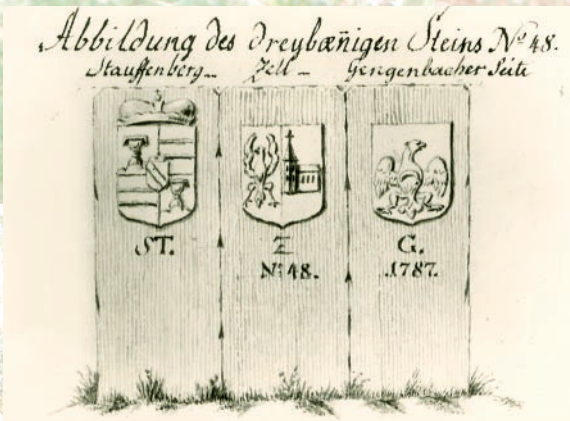 Abbildung des dreybæn̄igen Steins Nº 48.
Stauffenberg_ Zell_ Gengenbacher Seite
ST. Z G.
Nº: 48. 1787.